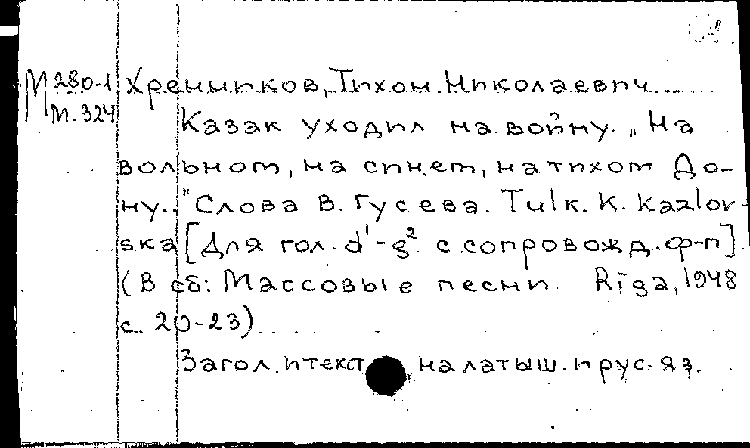 М 280-1 Хренников, Тихон Николаевич
м. 324 Казак уходил на войну. „На
вольном, на синем, на тихом До-
ну..." Слова В. Гусева. Tulk. K. Kazlov-
ska [Для гол. d¹-g² с сопровожд. ф-п]
(В сб: Массовые песни. Rīga, 1948
с. 20-23)
Загол. и текст на латыш. и рус. яз.